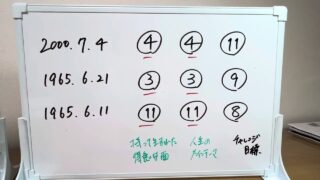 2000.7.4 ④ ④ ⑪
1965.6.21 ③ ③ ⑨
1965.6.11 ⑪ ⑪ ⑧
持って生まれた 人生の チャレンジ
メインテーマ 目標